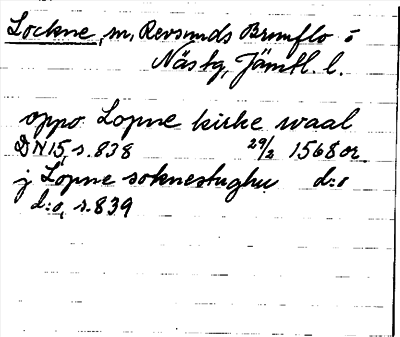 Lockne, sn, Revsunds Brunflo o
Näs tg, Jämtl. l.
oppo Lopne kirke waal
DN 15, s. 838 29/2 1568 or.
j Lopne soknestughu d:o
d:o, s. 839